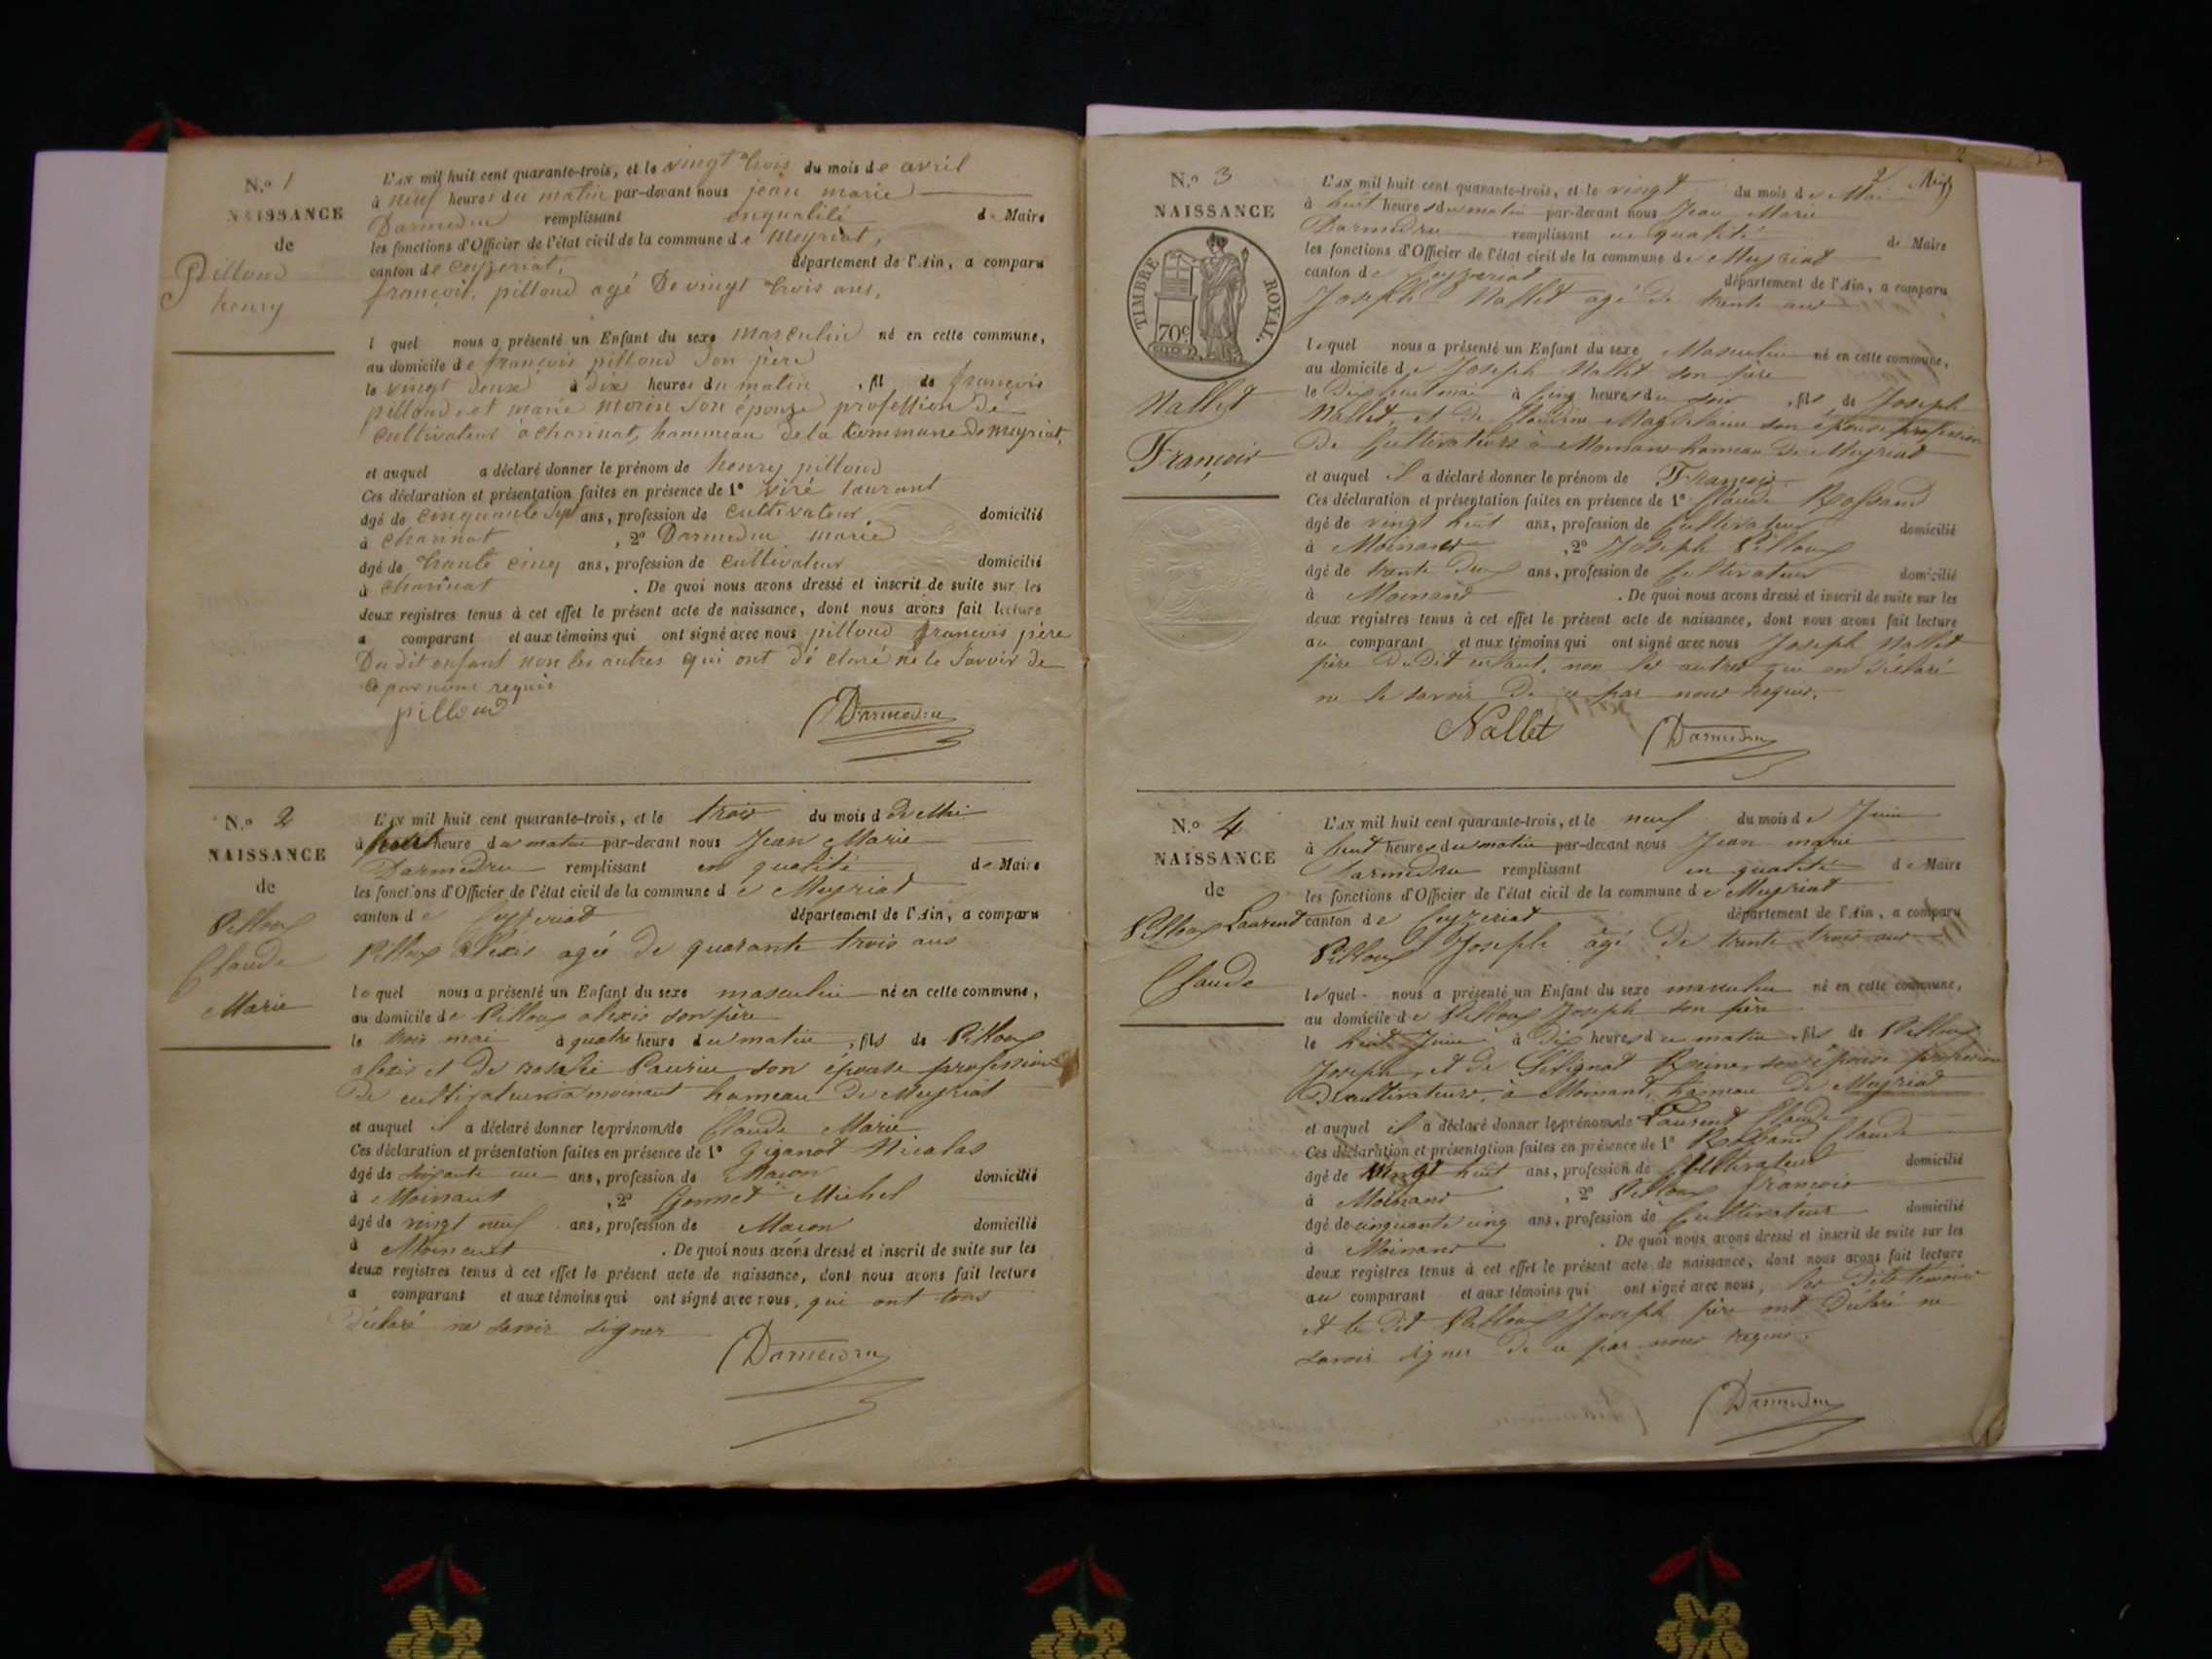 N.º 1
NAISSANCE
de
Pilloud
henry
L'AN mil huit cent quarante-trois, et le vingt trois du mois de avril
à neuf heures du matin par-devant nous jean marie
Darmedru remplissant enqualité de Maire
les fonctions d'Officier de l'état civil de la commune de meyriat,
canton de ceyzeriat, département de l'Ain, a comparu
françois, pilloud agé De vingt trois ans,
l quel nous a présenté un Enfant du sexe masculin né en cette commune,
au domicile de françois pilloud Son père
le vingt deux à dix heures du matin, fil de françois
pilloud et marie morin Son épouze profession de
cultivateur à charinat, hammeau de la Commune de meyriat,
et auquel a déclaré donner le prénom de henry pilloud
Ces déclaration et présentation faites en présence de 1º viré laurant
âgé de cinquante sept ans, profession de cultivateur domicilié
à charinat, 2º Darmedru marie
âgé de trante cinq ans, profession de cultivateur domicilié
à charinat. De quoi nous avons dressé et inscrit de suite sur les
deux registres tenus à cet effet le présent acte de naissance, dont nous avons fait lecture
a comparant et aux témoins qui ont signé avec nous pilloud francois père
Du dit enfant non les autres qui ont dé claré ne le Savoir de
ce par nous requis
pilloud Darmedru
N.º 2
NAISSANCE
de
Pilloux
Claude
Marie
L'AN mil huit cent quarante-trois, et le trois du mois d de Mai
à heure du matin par-devant nous Jean Marie
Darmedru remplissant en qualité de Maire
les fonctions d'Officier de l'état civil de la commune de Meyriat
canton de Ceyzeriat département de l'Ain, a comparu
Pilloux alexis agé de quarante trois ans
lequel nous a présenté un Enfant du sexe masculin né en cette commune,
au domicile de Pilloux alexis son père
le trois mai à quatre heure du matin, fils de Pilloux
alexis et de rosalie Paurin son épouse profession
De cultivateurs à moinant hameau De Meyriat
et auquel il a déclaré donner les prénoms de Claude Marie
Ces déclaration et présentation faites en présence de 1º Giganot Nicolas
âgé de soixante un ans, profession de Macon domicilié
à Moinant, 2º Gonnet Michel
âgé de vingt neuf ans, profession de Macon domicilié
à Moinant. De quoi nous avons dressé et inscrit de suite sur les
deux registres tenus à cet effet le présent acte de naissance, dont nous avons fait lecture
a comparant et aux témoins qui ont signé avec nous, qui ont tous
Déclaré ne savoir signer
Darmedru
2
N.º 3
NAISSANCE
TIMBRE ROYAL.
70c
Nallet
François
L'AN mil huit cent quarante-trois, et le vingt du mois de Mai
à huit heures du matin par-devant nous Jean Marie
Darmedru remplissant en qualité de Maire
les fonctions d'Officier de l'état civil de la commune de Meyriat
canton de Ceyzeriat département de l'Ain, a comparu
Joseph Nallet agé de trente ans
lequel nous a présenté un Enfant du sexe Masculin né en cette commune,
au domicile de Joseph Nallet son père
le Dix huit mai à cinq heures du soir, fils de Joseph
Nallet, et de Claudine Magdelaine son épouse profession
De Cultivateurs à Moinant hameau De Meyriat
et auquel il a déclaré donner le prénom de François
Ces déclaration et présentation faites en présence de 1º Claude Rossand
âgé de vingt huit ans, profession de Cultivateur domicilié
à Moinant, 2º Joseph Pilloux
âgé de trente Deux ans, profession de Cultivateur domicilié
à Moinand. De quoi nous avons dressé et inscrit de suite sur les
deux registres tenus à cet effet le présent acte de naissance, dont nous avons fait lecture
au comparant et aux témoins qui ont signé avec nous Joseph Nallet
père Du Dit enfant, non les autres qui on Déclaré
ne le savoir De ce par nous requis.
Nallet Darmedru
N.º 4
NAISSANCE
de
Pilloux Laurent
Claude
L'AN mil huit cent quarante-trois, et le neuf du mois de Juin
à huit heures du matin par-devant nous Jean marie
Darmedru remplissant en qualité de Maire
les fonctions d'Officier de l'état civil de la commune de Meyriat
canton de Ceyzeriat département de l'Ain, a comparu
Pilloux Joseph âgé De trente trois ans
lequel nous a présenté un Enfant du sexe masculin né en cette commune,
au domicile de Pilloux Joseph son père
le huit Juin à Dix heures du matin, fils de Pilloux
Joseph, et de Reine son épouse profession
De cultivateurs, à Moinant, hameau De Meyriat
et auquel il a déclaré donner les prénoms de Laurent Claude
Ces déclaration et présentation faites en présence de 1º Rossand Claude
âgé de vingt huit ans, profession de Cultivateur domicilié
à Moinand, 2º Pilloux françois
âgé de cinquante cinq ans, profession de Cultivateur domicilié
à Moinand. De quoi nous avons dressé et inscrit de suite sur les
deux registres tenus à cet effet le présent acte de naissance, dont nous avons fait lecture
au comparant et aux témoins qui ont signé avec nous, les Dits témoins
et le Dit Pilloux Joseph père ont Déclaré ne
savoir signer De ce par nous requis.
Darmedru